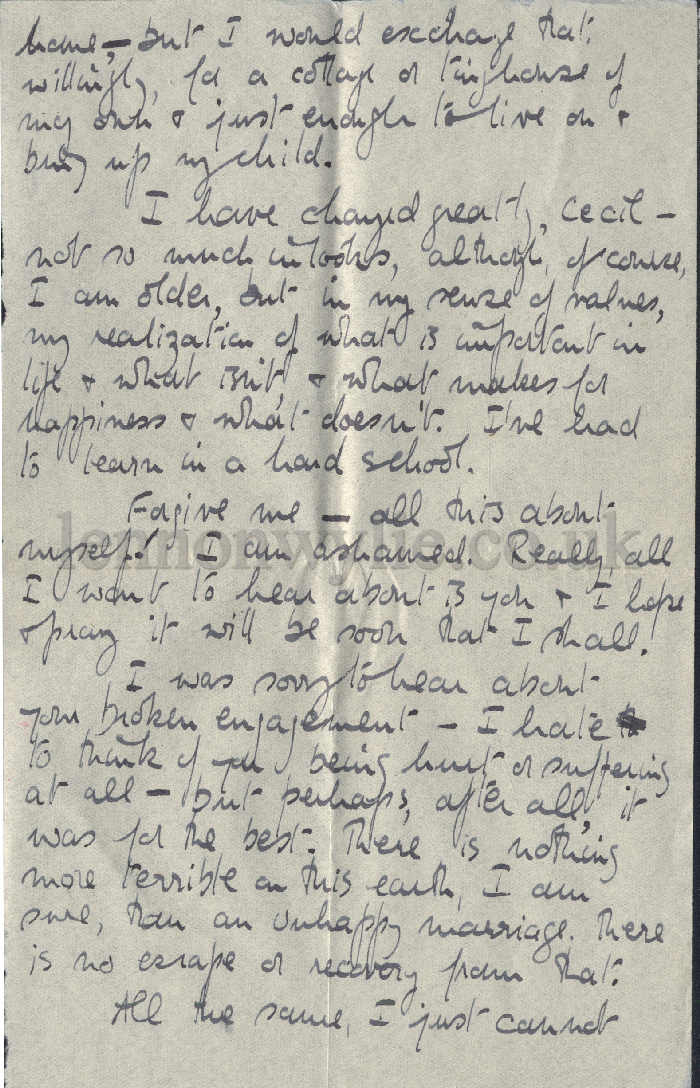 home, - but I would exchange that
willingly, for a cottage or tiny house of
my own & just enough to live on &
bring up my child.
I have changed greatly, Cecil -
not so much in looks, although, of course,
I am older, but in my sense of values,
my realization of what is important in
life & what isn't, & what makes for
happiness & what doesn't. I've had
to learn in a hard school.
Forgive me - all this about
myself! I am ashamed. Really, all
I want to hear about is you & I hope
& pray it will be soon that I shall.
I was sorry to hear about
your broken engagement - I hate
to think of you being hurt or suffering
at all - but perhaps, after all, it
was for the best. There is nothing
more terrible on this earth, I am
sure, than an unhappy marriage. There
is no escape or recovery from that.
All the same, I just cannot
lennonwylie.co.uk